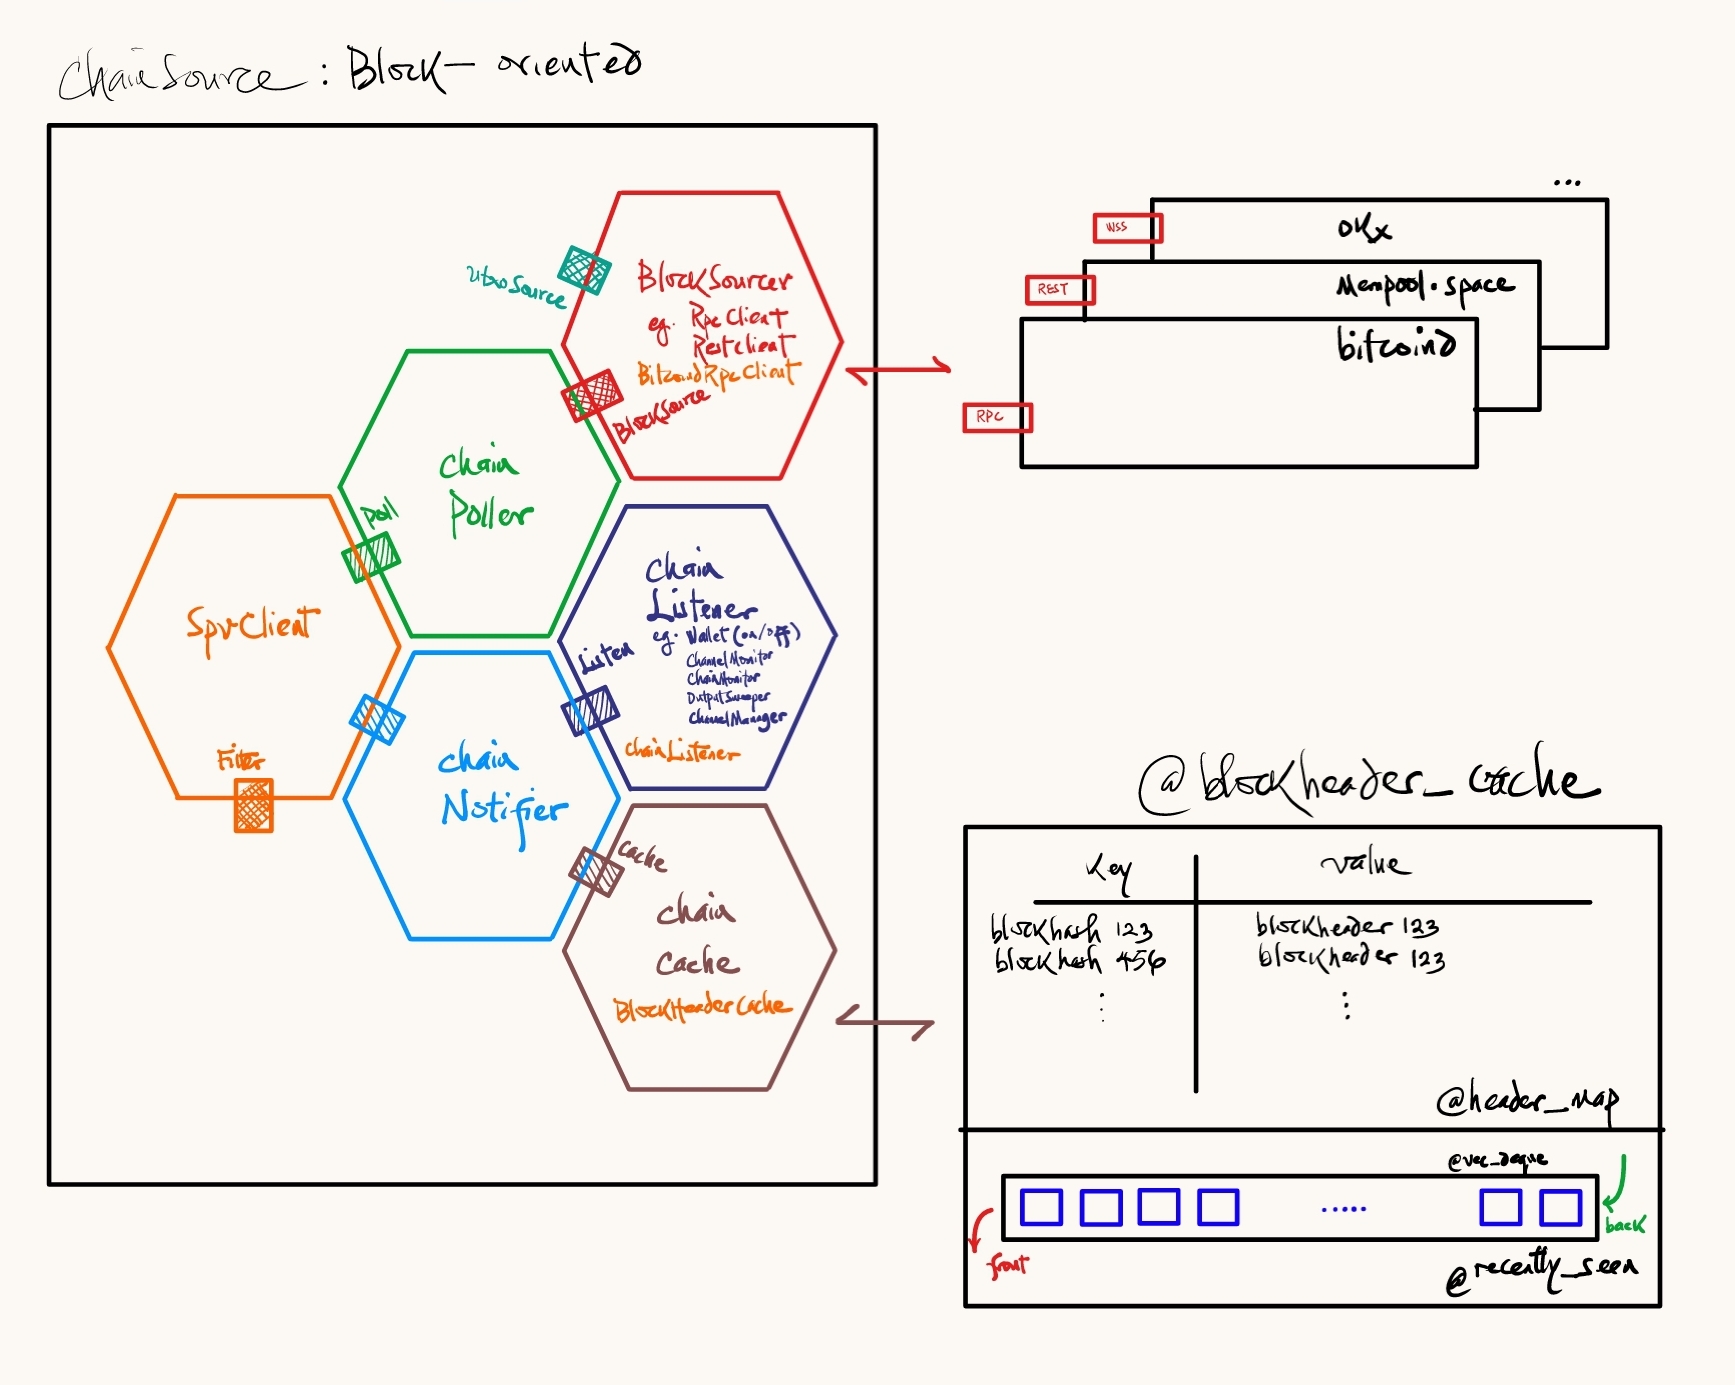 ChainSource : Block-oriented
UtxoSource
BlockSourcer
eg. RpcClient
RestClient
BitcoindRpcClient
BlockSource
Chain
Poller
Poll
SpvClient
Filter
Chain
Listener
eg. Wallet (on/off)
ChannelMonitor
ChainMonitor
OutputSweeper
ChannelManager
ChainListener
Listen
Chain
Notifier
Cache
Chain
Cache
BlockHeaderCache
...
WSS
OKx
REST
Mempool.space
bitcoind
RPC
@blockheader_cache
key value
blockhash 123 blockheader 123
blockhash 456 blockheader 123
@header_map
@vec_deque
back
front
@recently_seen